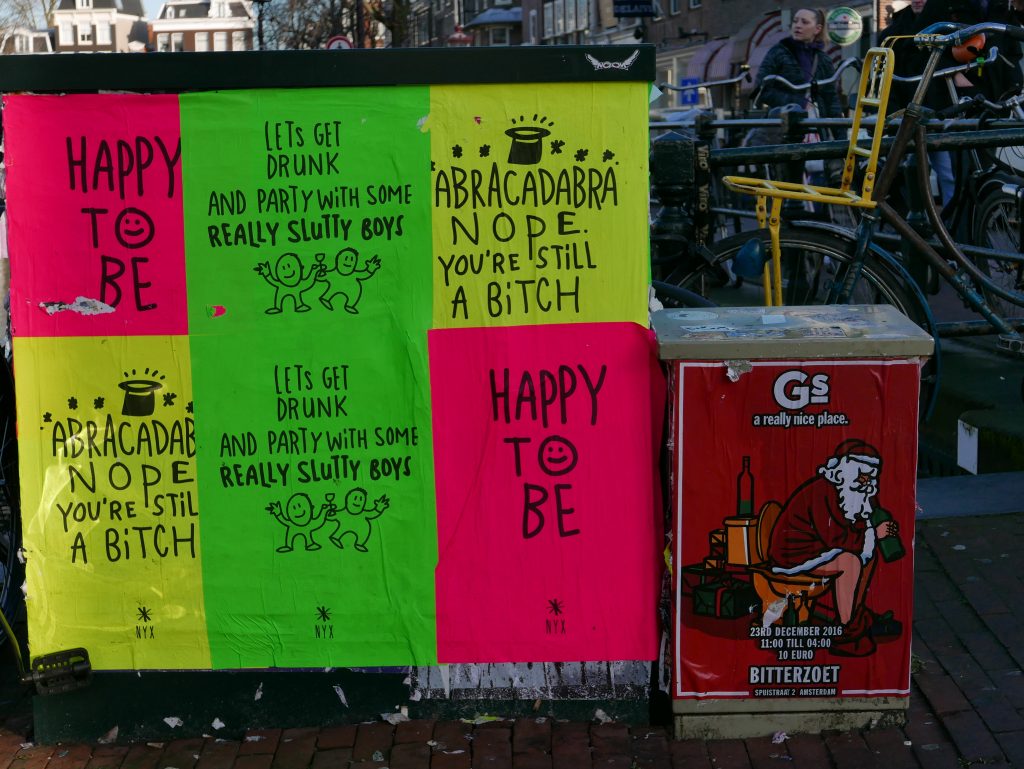 NOOK
HAPPY
TO
BE
LETS GET
DRUNK
AND PARTY WITH SOME
REALLY SLUTTY BOYS
ABRACADABRA
NOPE.
YOU'RE STILL
A BITCH
ABRACADAB
NOPE
YOU'RE STIL
A BITCH
NYX
LETS GET
DRUNK
AND PARTY WITH SOME
REALLY SLUTTY BOYS
NYX
HAPPY
TO
BE
NYX
Gs
a really nice place.
23RD DECEMBER 2016
11:00 TILL 04:00
10 EURO
BITTERZOET
SPUISTRAAT 2 AMSTERDAM